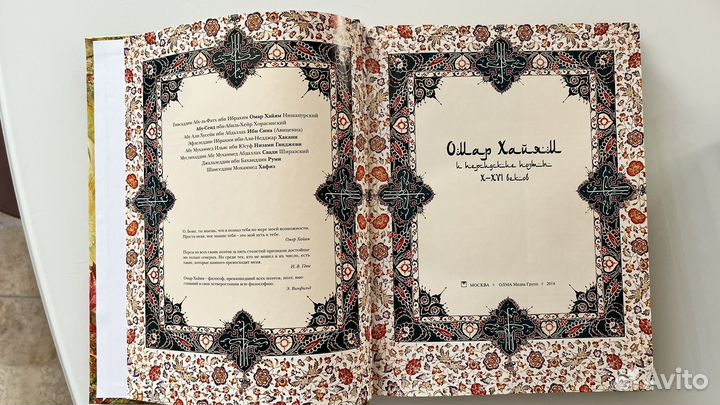 Гиясаддин Абу-ль-Фатх ибн Ибрахим Омар Хайям Нишапурский
Абу-Сеид ибн Абиль-Хейр Хорасанский
Абу Али Хусейн ибн Абдаллах Ибн Сина (Авиценна)
Эфзеледдин Ибрахим ибн Али-Неджар Хакани
Абу Мухаммед Ильяс ибн Юсуф Низами Гянджеви
Муслихаддин Абу Мухаммед Абдаллах Саади Ширазский
Джалаледдин ибн Бахаиддин Руми
Шамседдин Мохаммед Хафиз
О, Боже, ты знаешь, что я познал тебя по мере моей возможности.
Прости меня, мое знание тебя – это мой путь к тебе.
Омар Хайям
Персы из всех своих поэтов за пять столетий признали достойны-
ми только семерых. Но среди тех, кто не вошел в их число, есть
такие, которые намного превосходят меня.
И. В. Гёте
Омар Хайям – философ, превзошедший всех поэтов, поэт, вме-
стивший в свои четверостишия всю философию.
Э. Винфильд
Омар Хайям
и персидские поэты
X–XVI веков
МОСКВА ОЛМА Медиа Групп 2014
Avito